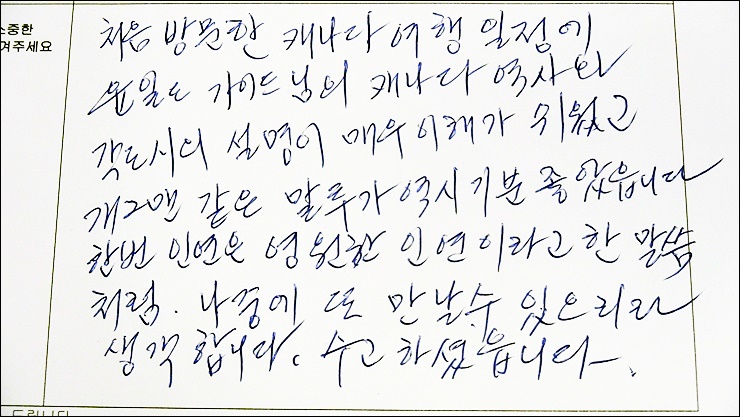 소중한
겨주세요
처음 방문한 캐나다 여행 일정에
윤일도 가이드님의 캐나다 역사와
각도시의 설명이 매우 이해가 쉬웠고
개그맨 같은 말투가 역시 기분 좋았읍니다
한번 인연은 영원한 인연이라고 한 말씀
처럼. 나중에 또 만날수 있으리라
생각합니다. 수고하셨읍니다.
드립니다